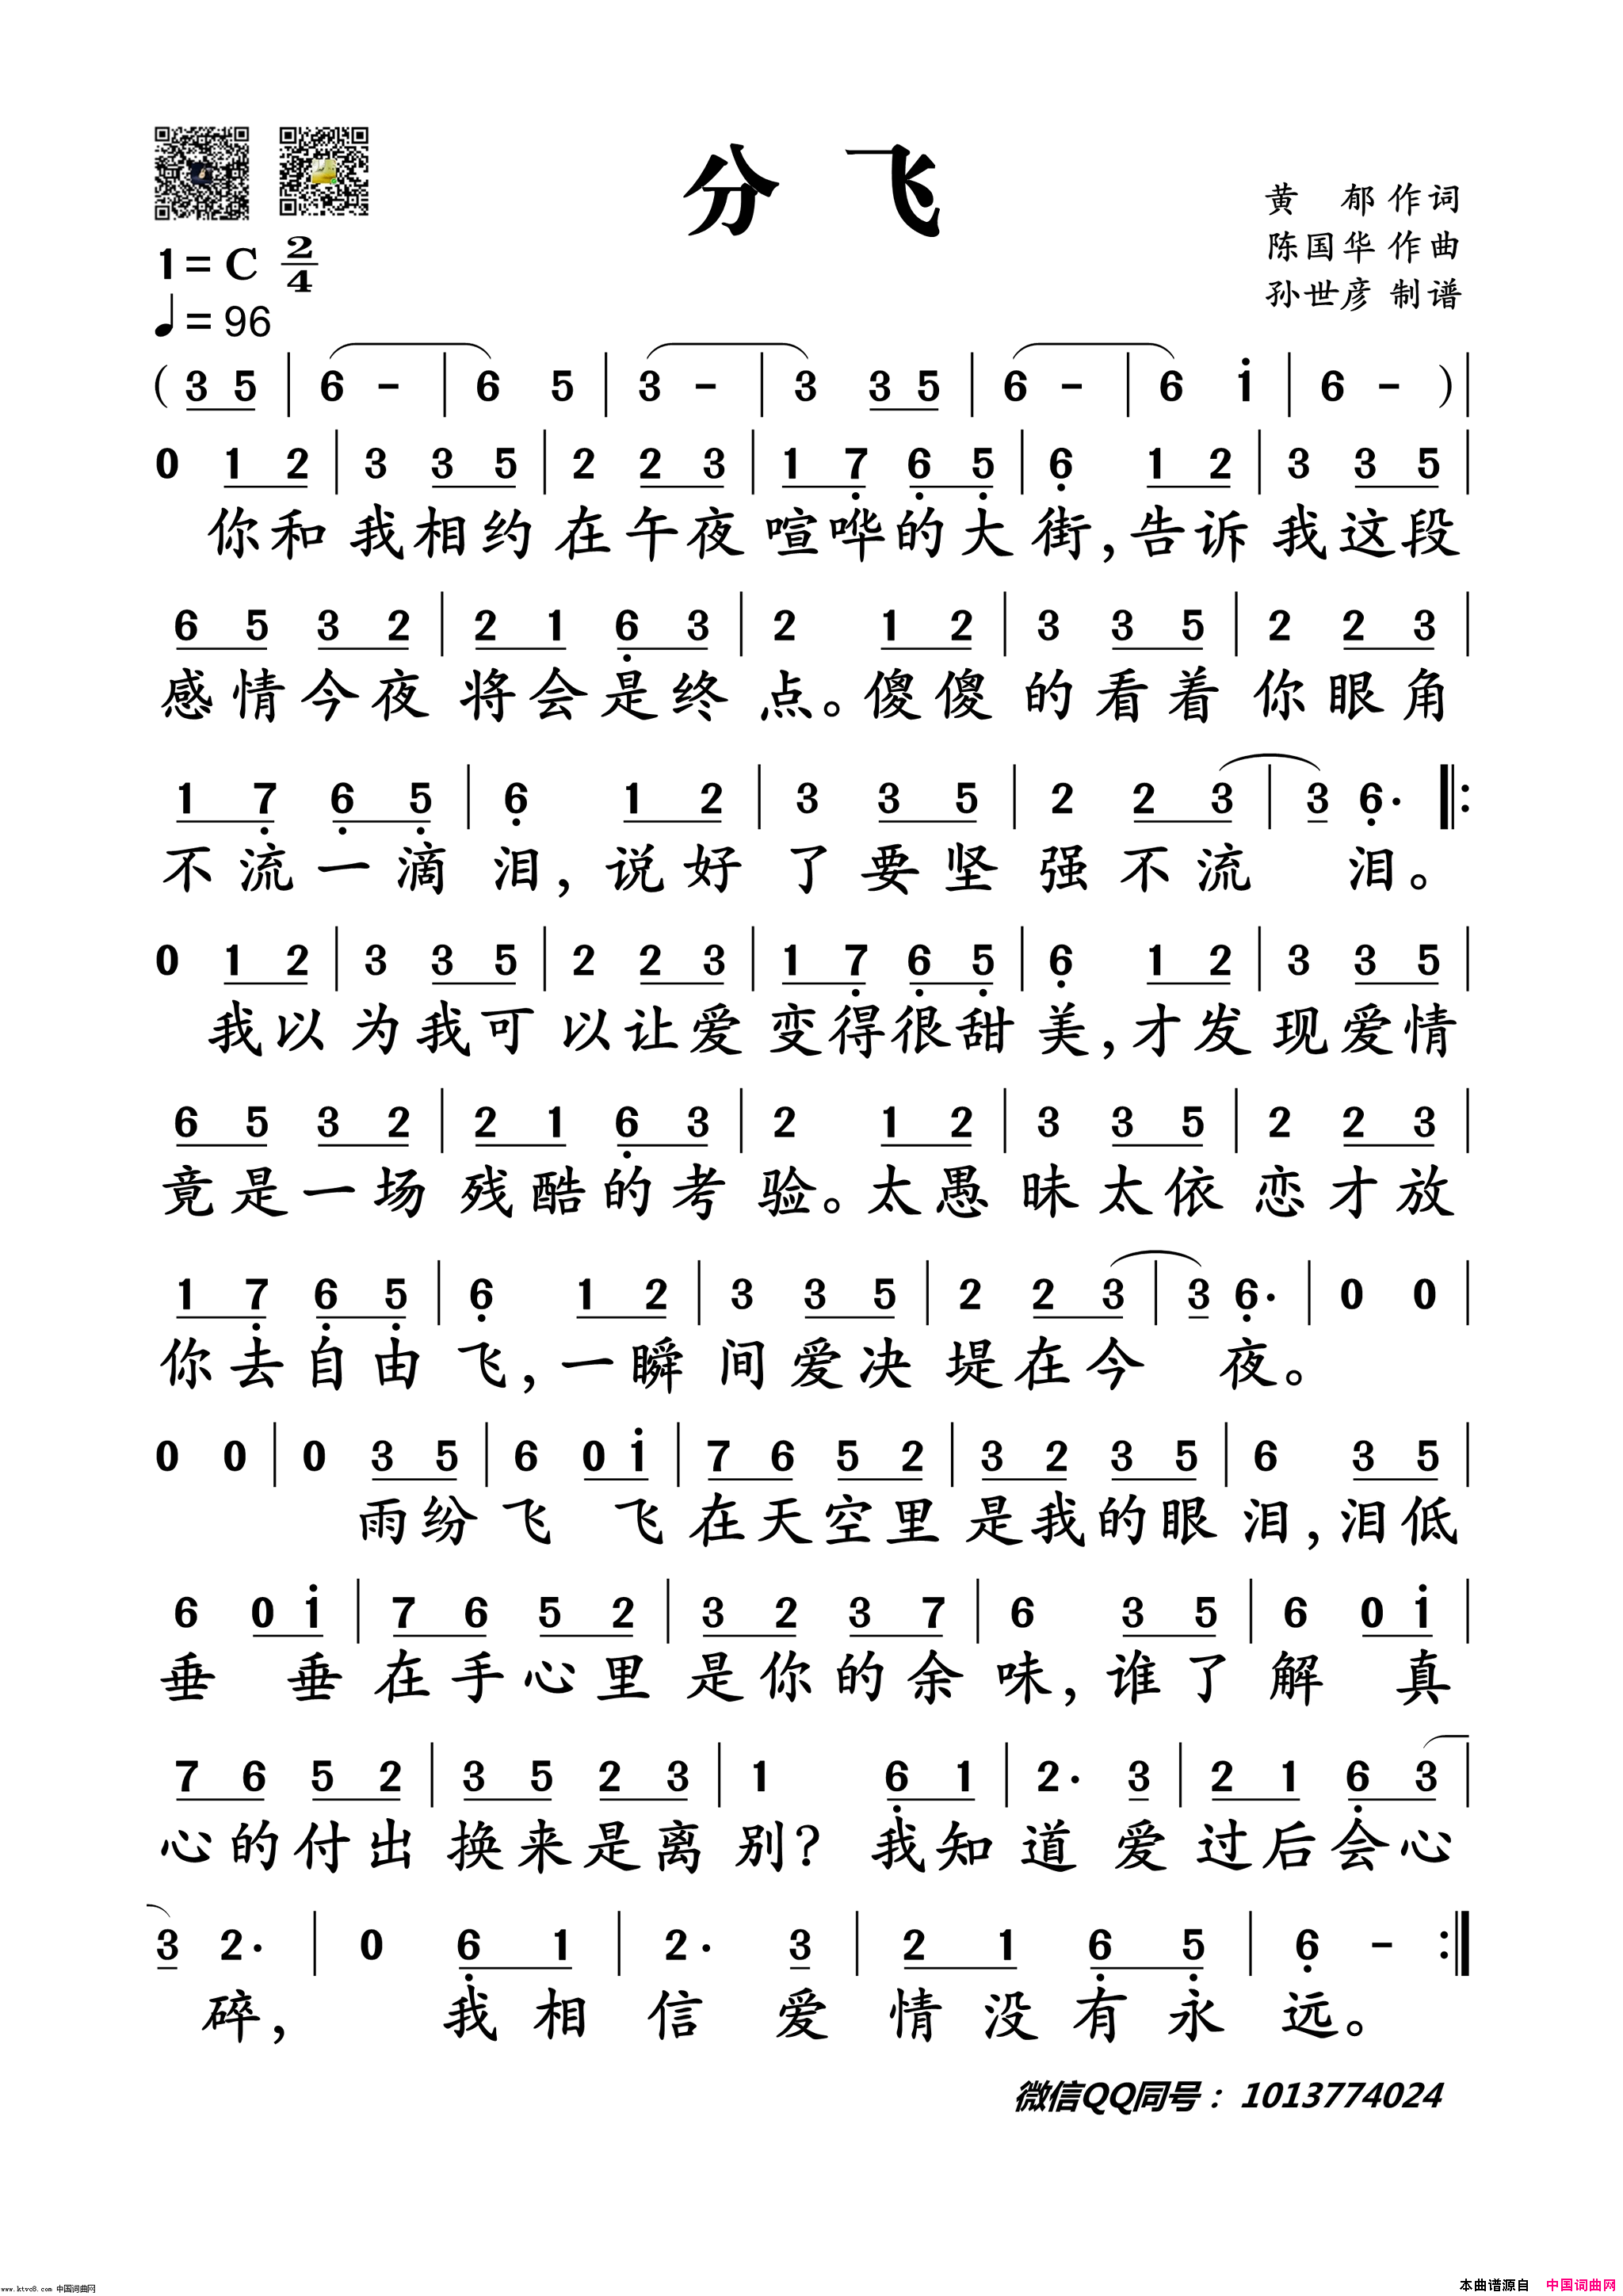 分 飞
黄 郁 作 词
陈 国 华 作 曲
孙 世 彦 制 谱
1= C 2/4
♩= 96
( 3 5 | 6 - | 6 5 | 3 - | 3 3 5 | 6 - | 6 i | 6 - ) |
0 1 2 | 3 3 5 | 2 2 3 | 1 7 6 5 | 6 1 2 | 3 3 5 |
你 和 我 相 约 在 午 夜 喧 哗 的 大 街, 告 诉 我 这 段
6 5 3 2 | 2 1 6 3 | 2 1 2 | 3 3 5 | 2 2 3 |
感 情 今 夜 将 会 是 终 点。 傻 傻 的 看 着 你 眼 角
1 7 6 5 | 6 1 2 | 3 3 5 | 2 2 3 | 3 6· ‖:
不 流 一 滴 泪, 说 好 了 要 坚 强 不 流 泪。
0 1 2 | 3 3 5 | 2 2 3 | 1 7 6 5 | 6 1 2 | 3 3 5 |
我 以 为 我 可 以 让 爱 变 得 很 甜 美, 才 发 现 爱 情
6 5 3 2 | 2 1 6 3 | 2 1 2 | 3 3 5 | 2 2 3 |
竟 是 一 场 残 酷 的 考 验。 太 愚 昧 太 依 恋 才 放
1 7 6 5 | 6 1 2 | 3 3 5 | 2 2 3 | 3 6· | 0 0 |
你 去 自 由 飞, 一 瞬 间 爱 决 堤 在 今 夜。
0 0 | 0 3 5 | 6 0 i | 7 6 5 2 | 3 2 3 5 | 6 3 5 |
雨 纷 飞 飞 在 天 空 里 是 我 的 眼 泪, 泪 低
6 0 i | 7 6 5 2 | 3 2 3 7 | 6 3 5 | 6 0 i |
垂 垂 在 手 心 里 是 你 的 余 味, 谁 了 解 真
7 6 5 2 | 3 5 2 3 | 1 6 1 | 2· 3 | 2 1 6 3 |
心 的 付 出 换 来 是 离 别? 我 知 道 爱 过 后 会 心
3 2· | 0 6 1 | 2· 3 | 2 1 6 5 | 6 - :‖
碎, 我 相 信 爱 情 没 有 永 远。
微信QQ同号：1013774024
www.ktvc8.com 中国词曲网
本曲谱源自 中国词曲网